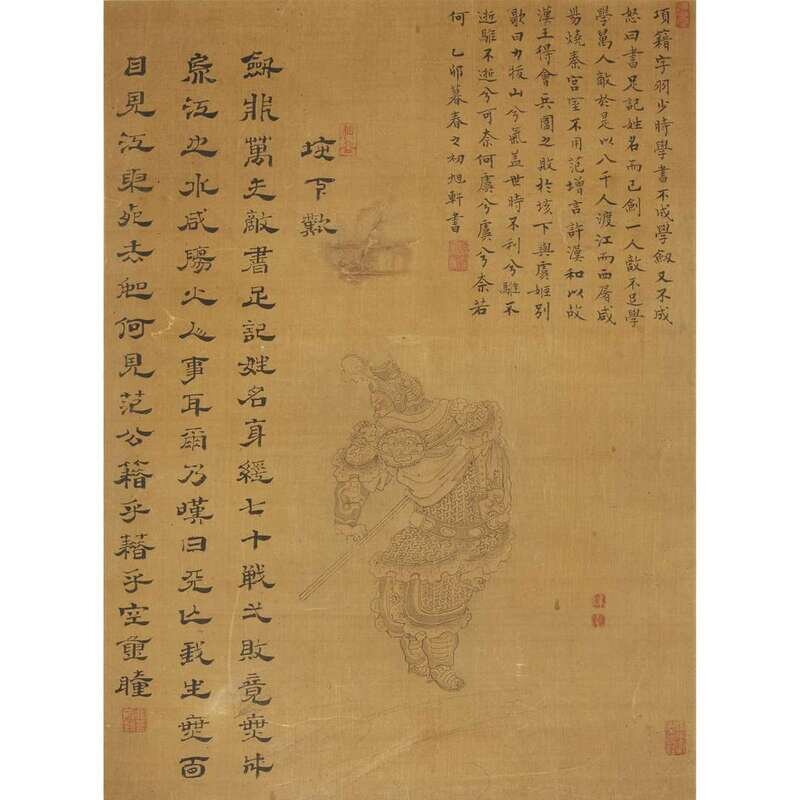 項籍字羽少時學書不成學劍又不成
怒曰書足記姓名而已劍一人敵不足學
學萬人敵於是以八千人渡江而西屠咸
昜燒秦宮室不用范增言許漢和以故
漢王得會兵圍之敗於垓下與虞姬別
歌曰力拔山兮氣蓋世時不利兮騅不
逝騅不逝兮可奈何虞兮虞兮奈若
何 乙卯暮春之初旭軒書
垓下歎
劍非萬夫敵書足記姓名身經七十戰弌敗竟無成
烏江之水咸陽火人事耳爾乃嘆曰天亡我生無面
目見江東死去何見范公籍乎籍乎空重瞳